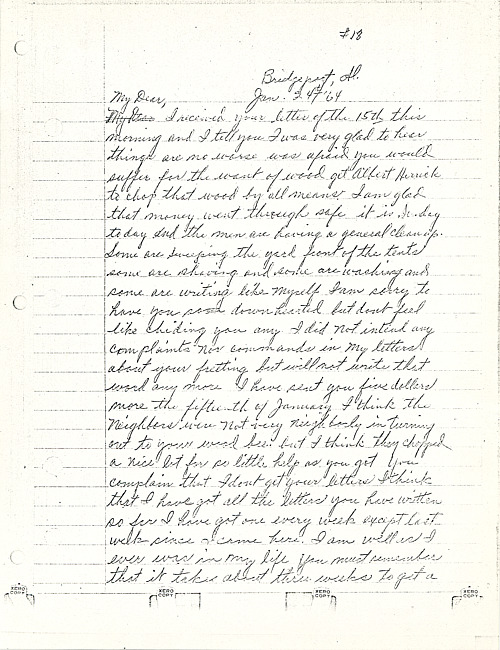 #18
Bridgeport, Al.
My Dear, Jan. 24th '64
My Dear I received your letter of the 15th this
morning and I tell you I was very glad to hear
things are no worse was afraid you would
suffer for the want of wood get Albert Herrick
to chop that wood by all means I am glad
that money went through safe it is day
today and the men are having a general cleanup.
Some are sweeping the yard front of the tents
some are shaving and some are washing and
some are writing like myself I am sorry to
have you so down hearted but dont feel
like chiding you any I did not intend any
complaints nor commands in my letters
about your fretting but will not write that
word any more I have sent you five dollars
more the fifteenth of January I think the
Neighbors were not very neighborly in turning
out to your wood bee but I think they chopped
a nice lot for so little help as you got You
complain that I dont get your letters I think
that I have got all the letters you have written
so far I have got one every week except last
week since I came here. I am well as I
ever was in my life you must remember
that it takes about three weeks to get a
XERO COPY
XERO COPY
XERO COPY
XERO COPY